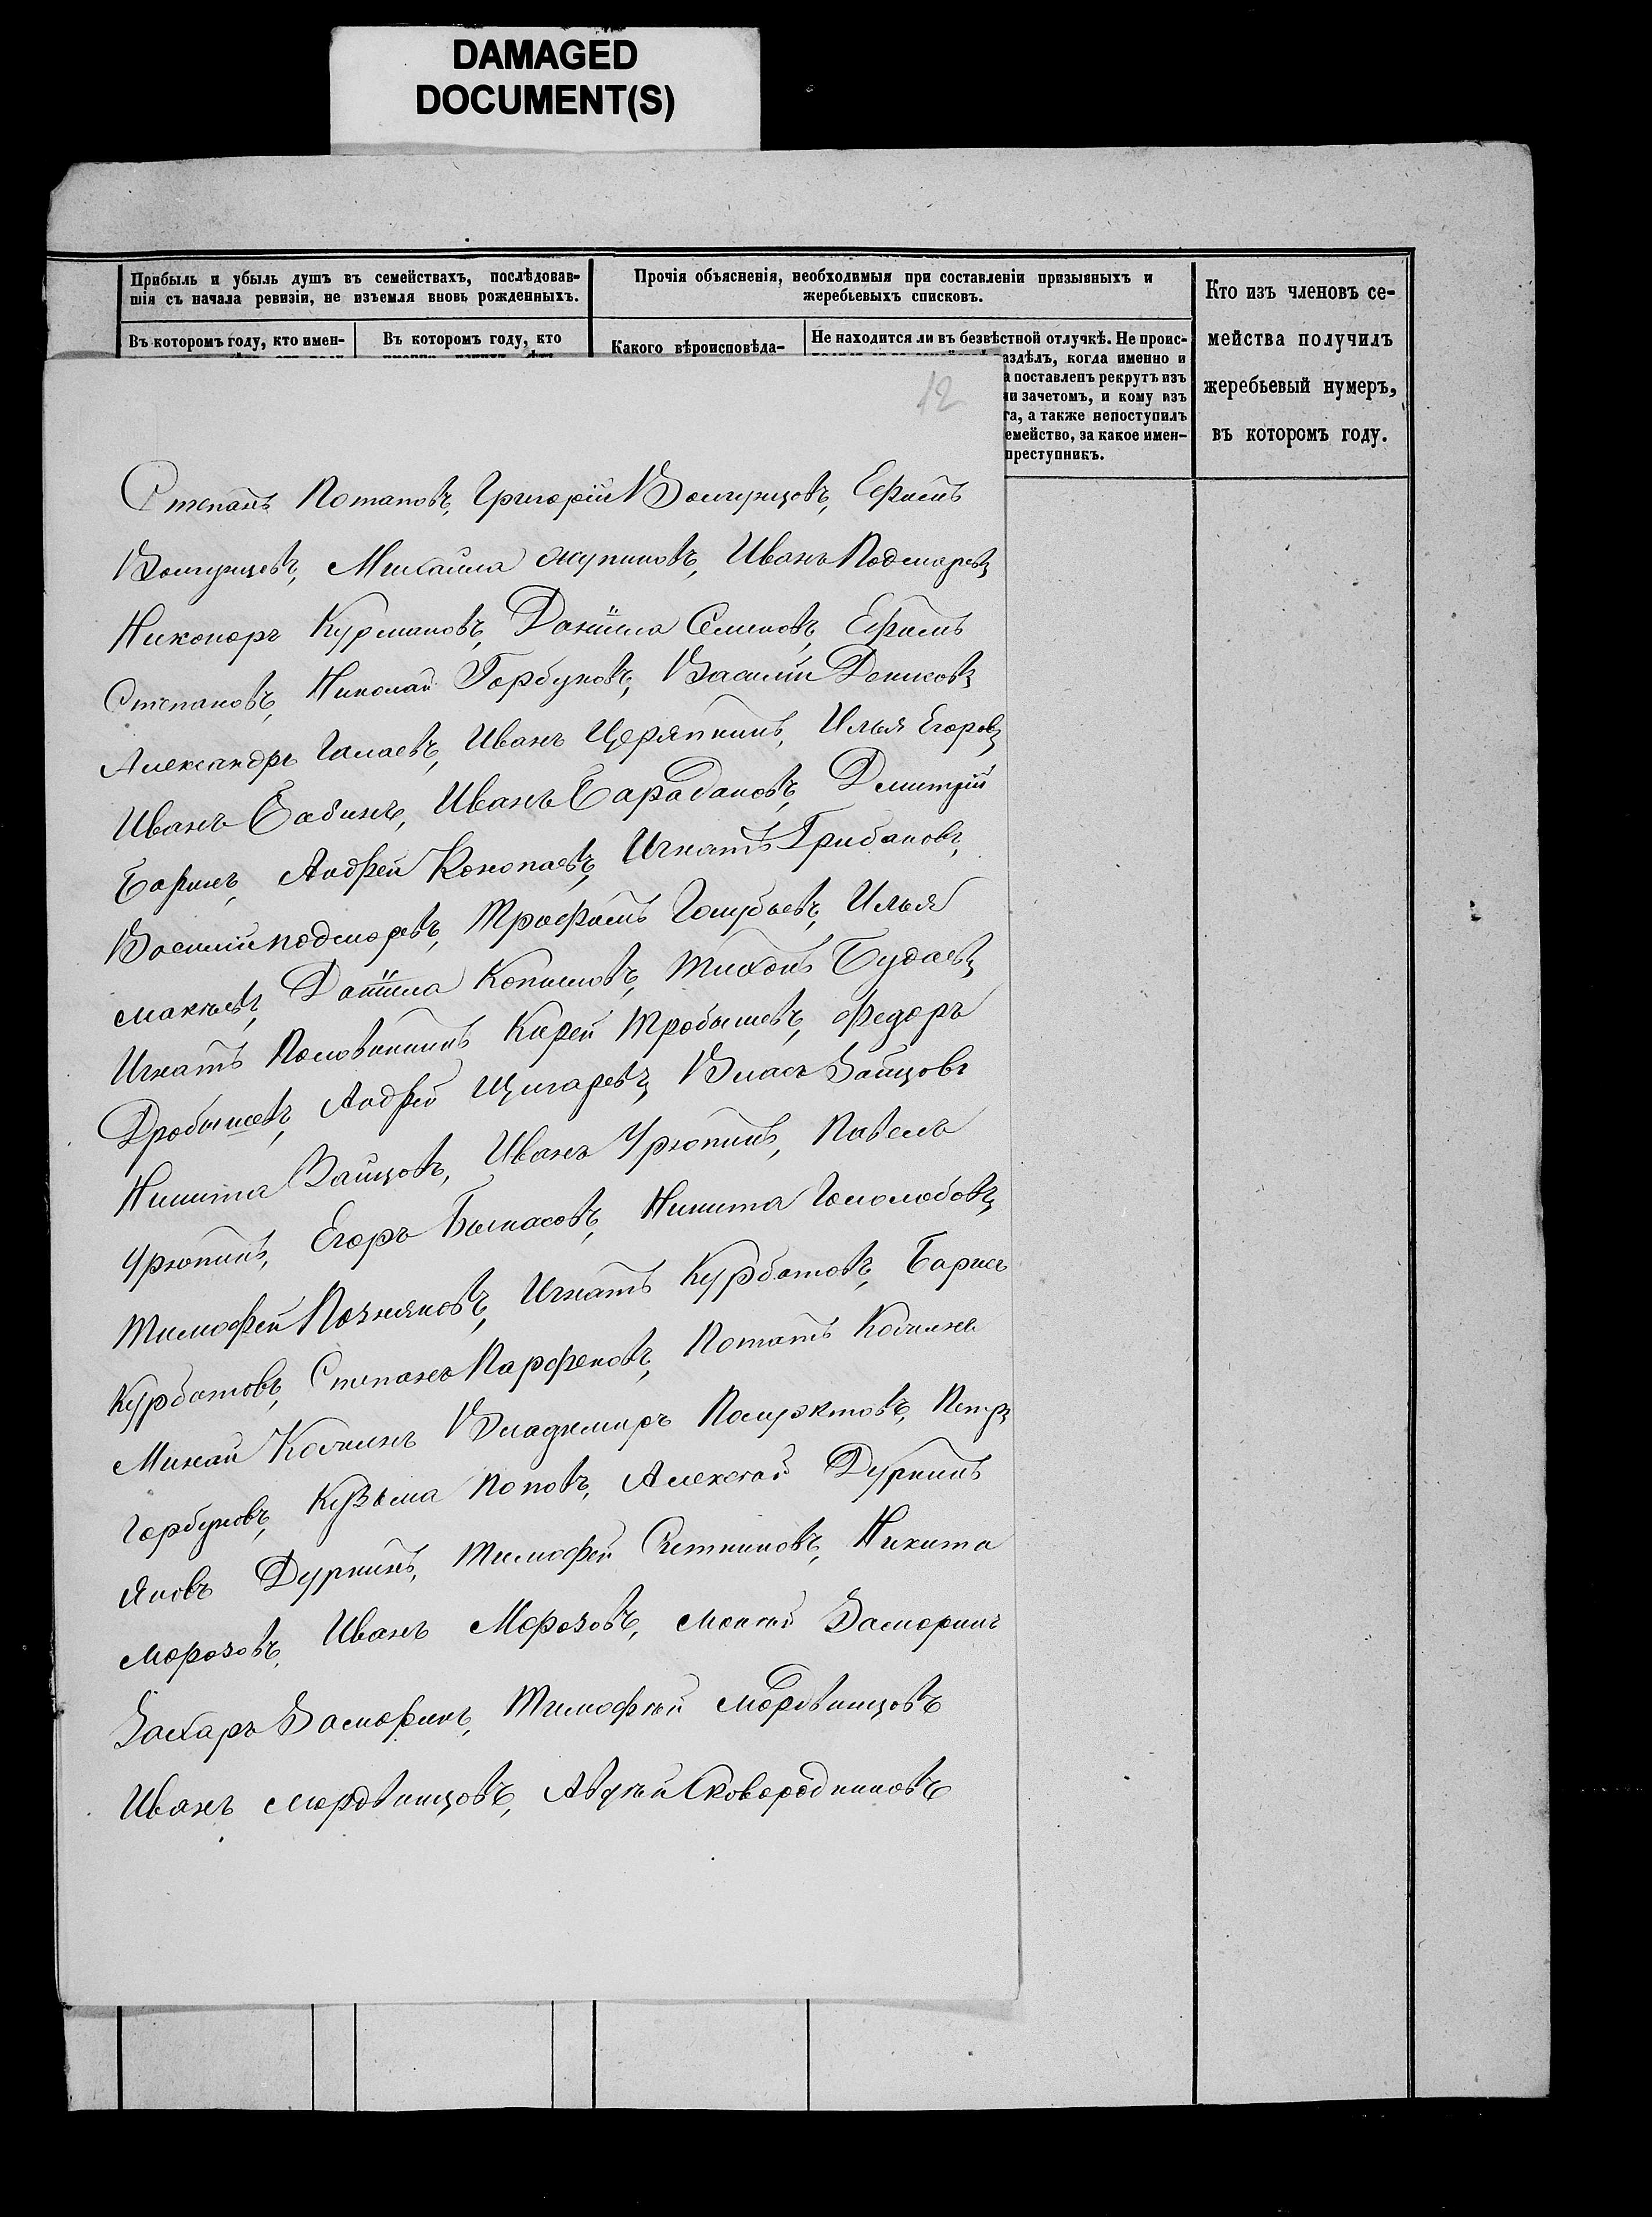 DAMAGED
DOCUMENT(S)
Прибыль и убыль душъ въ семействахъ, послѣдовав-
шія съ начала ревизіи, не изъемля вновь рожденныхъ.
Въ которомъ году, кто имен-
Въ которомъ году, кто
Прочія объясненія, необходимыя при составленіи призывныхъ и
жеребьевыхъ списковъ.
Какого вѣроисповѣда-
Не находится ли въ безвѣстной отлучкѣ. Не проис-
аздѣлъ, когда именно и
а поставленъ рекрутъ изъ
и зачетомъ, и кому изъ
га, а также непоступилъ
емейство, за какое имен-
преступникъ.
Кто изъ членовъ се-
мейства получилъ
жеребьевый нумеръ,
въ которомъ году.
12
Степанъ Потаповъ, Григорій Болгунцовъ, Ефимъ
Болгунцевъ, Михайла Жупиковъ, Иванъ Подмаревъ
Никоноръ Курмановъ, Данiила Семиновъ, Ефимъ
Степановъ, Николай Горбуновъ, Василій Денисовъ
Александръ Галаевъ, Иванъ Церяпкинъ, Илья Егоровъ
Иванъ Бабинъ, Иванъ Барабановъ, Дмитрій
Баринъ, Андрей Конопаевъ, Игнатъ Грибановъ,
Василій подмаревъ, Трофимъ Голубьевъ, Илья
Данiила Копыловъ, Тихонъ Будаевъ
Игнатъ Половинкинъ Карей Тробышевъ, Федоръ
Дробышевъ, Андрей Щигаревъ, Власъ Зайцовъ
Никита Зайцовъ, Иванъ Урюпинъ, Павелъ
Урюпинъ, Егоръ Никита Гололобовъ
Тимофей Позняковъ, Игнатъ Курбатовъ, Барисъ
Курбатовъ, Степанъ Парфеновъ, Потапъ Кочкинъ
Минай Кочкинъ Владимиръ Полуэктовъ, Петръ
Горбуновъ, Кузьма Поповъ, Алексѣй Дуркинъ
Яковъ Дуркинъ, Тимофей Сетниковъ, Никита
морозовъ, Иванъ Морозовъ, Заморинъ
Захаръ Заморинъ, Тимофѣй мордвинцовъ
Иванъ мордвинцовъ, Авдѣй Сковородниковъ